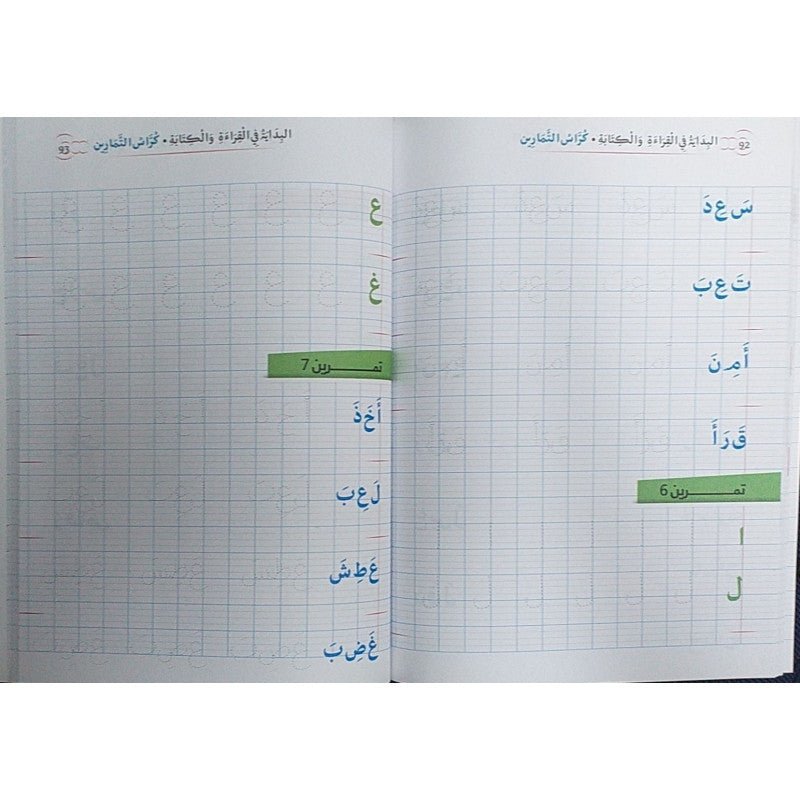 92 البِدَايَةُ فِي الْقِرَاءَةِ وَالْكِتَابَةِ • كُرَّاسُ التَّمَارِين
سَ عِ دَ
تَ عِ بَ
أَ مِ نَ
قَ رَ أَ
تمـــــرين 6
ا
ل
البِدَايَةُ فِي الْقِرَاءَةِ وَالْكِتَابَةِ • كُرَّاسُ التَّمَارِين 93
ع
غ
تمـــــرين 7
أَ خَ ذَ
لَ عِ بَ
عَ طِ شَ
غَ ضِ بَ